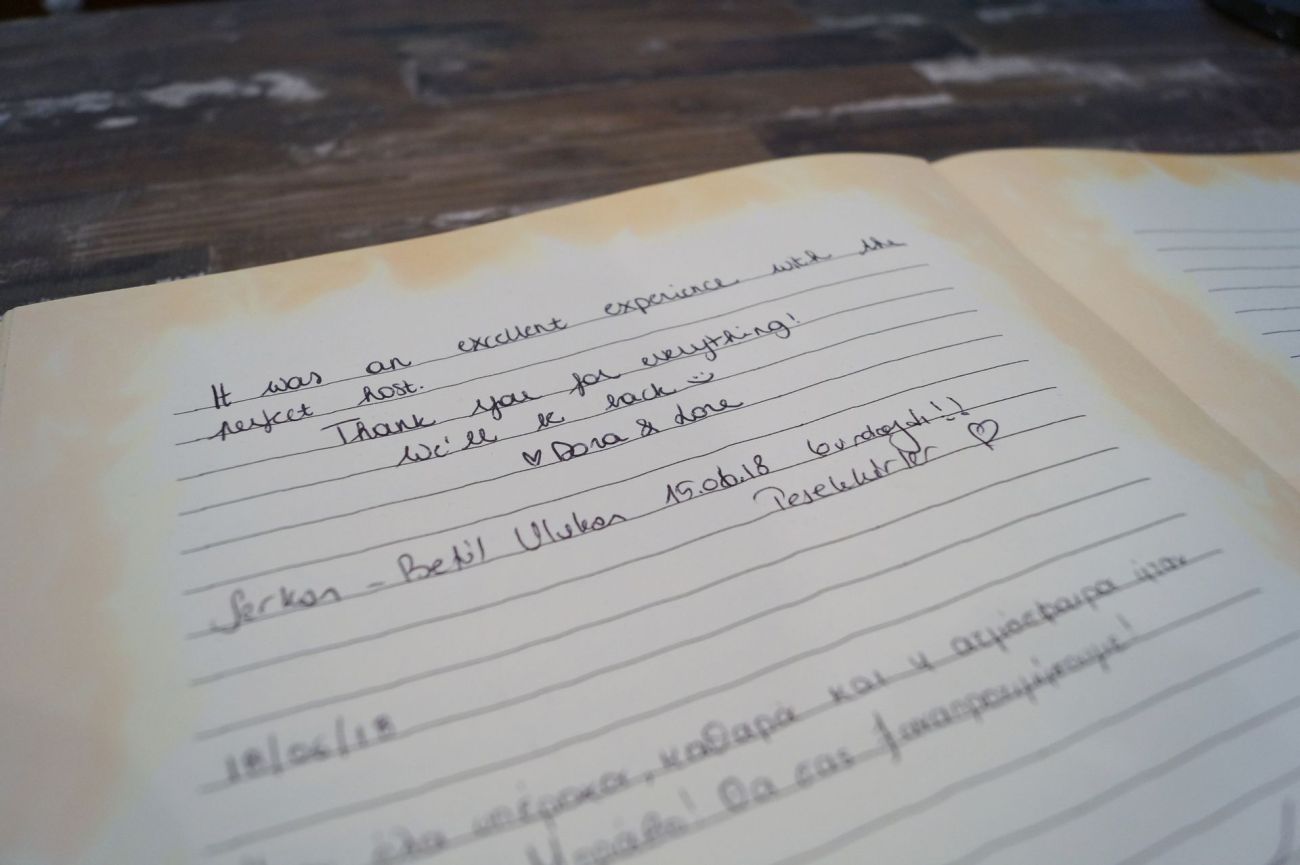 It was an excellent experience with the
perfect host.
Thank you for everything!
We'll be back
Dora & Lore
Serkan - Betül Ulukan 15.06.18 burdaydı!!
Teşekkürler
18/06/18
όλα υπέροχα, καθαρά και η ατμόσφαιρα ήταν
Μπράβο! Θα σας ξαναπροτιμήσουμε!